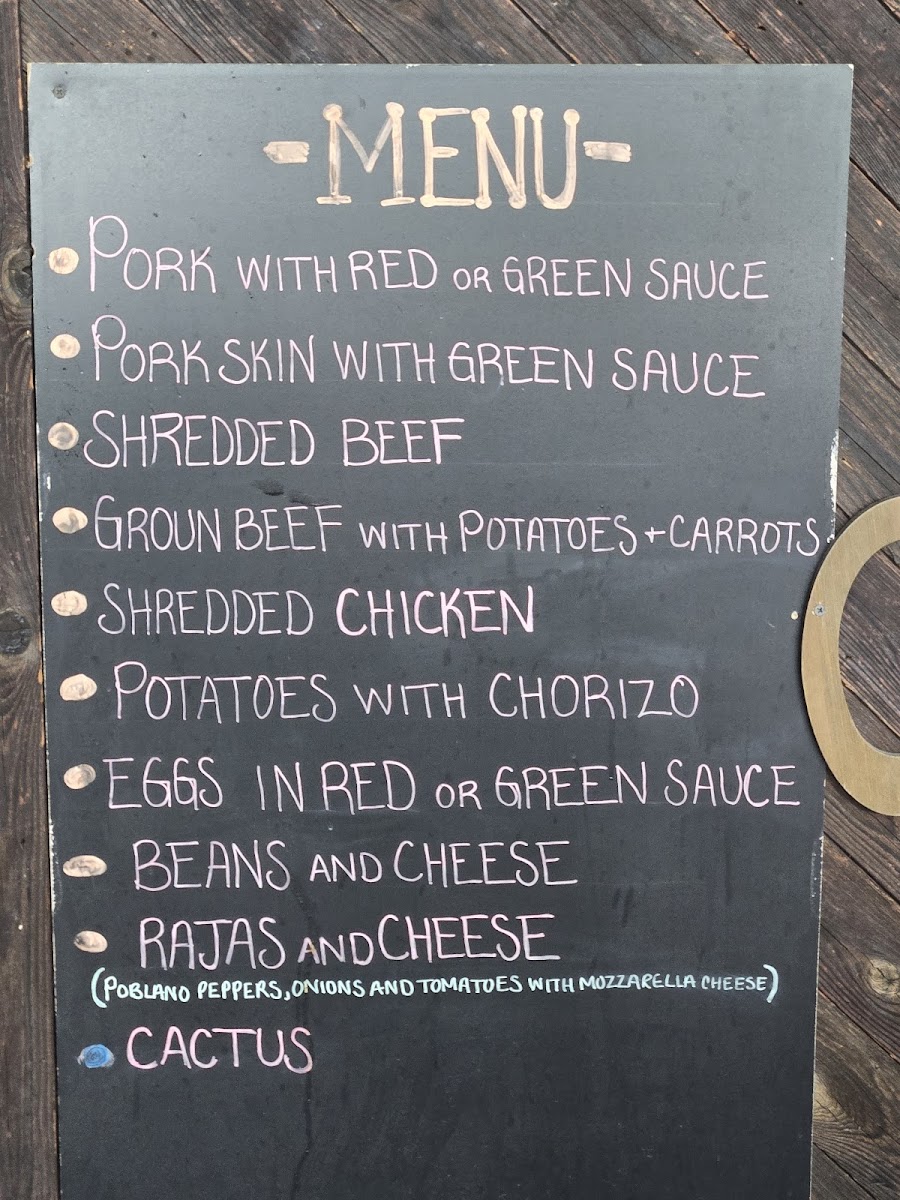 -MENU-
PORK WITH RED OR GREEN SAUCE
PORK SKIN WITH GREEN SAUCE
SHREDDED BEEF
GROUN BEEF WITH POTATOES + CARROTS
SHREDDED CHICKEN
POTATOES WITH CHORIZO
EGGS IN RED OR GREEN SAUCE
BEANS AND CHEESE
RAJAS AND CHEESE
(POBLANO PEPPERS, ONIONS AND TOMATOES WITH MOZZARELLA CHEESE)
CACTUS